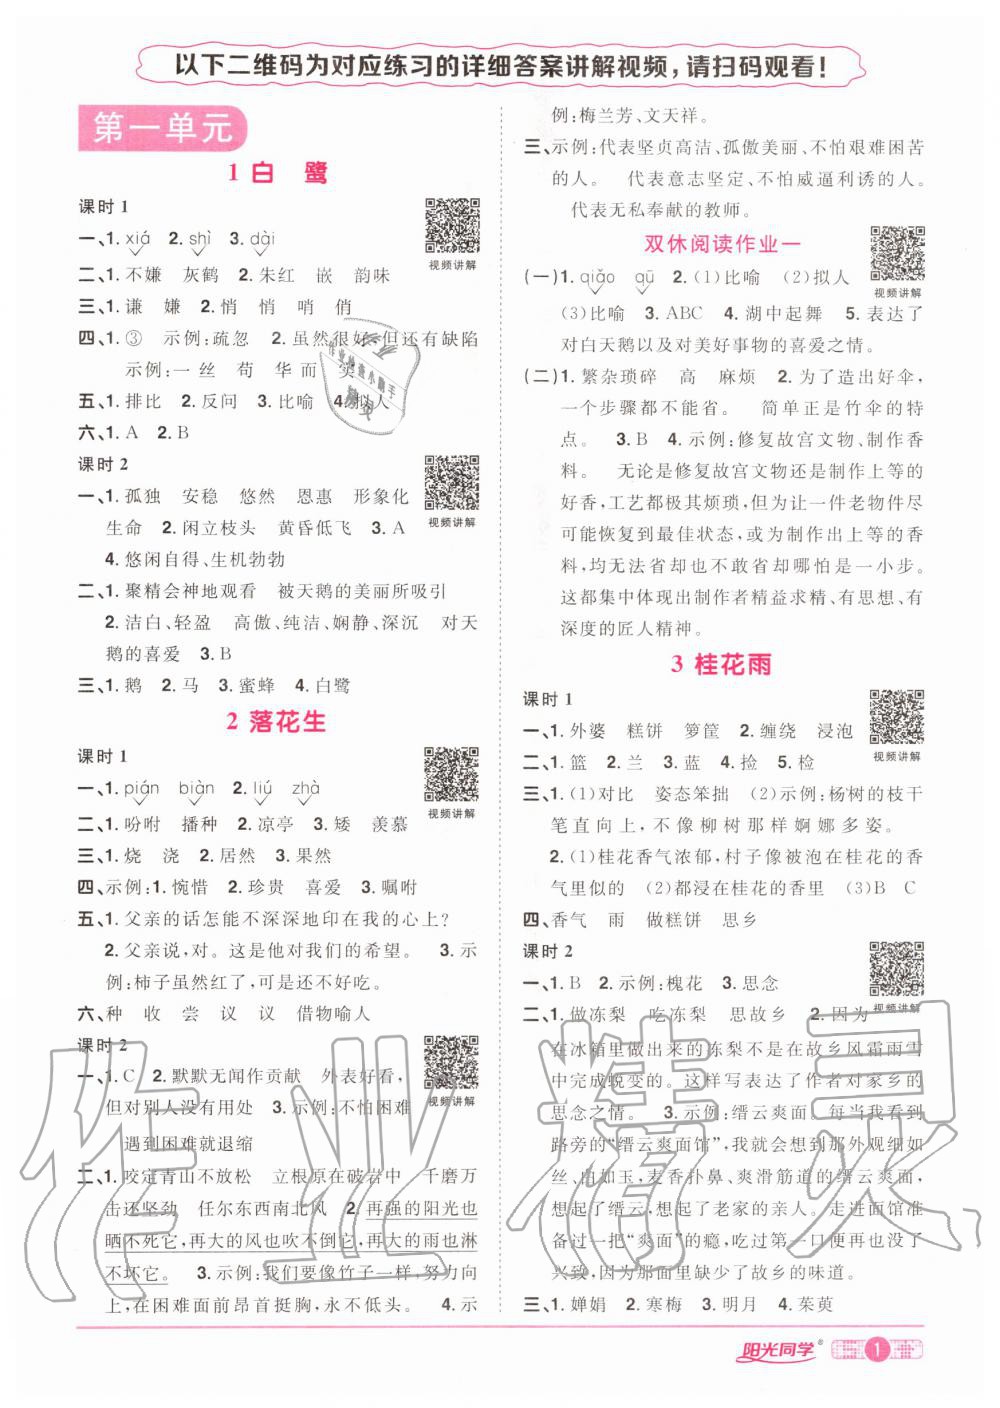 以下二维码为对应练习的详细答案讲解视频,请扫码观看!
第一单元
1 白 鹭
课时1
一、1. xiá 2. shì 3. dài
视频讲解
二、1. 不嫌 灰鹤 2. 朱红 嵌 韵味
三、1. 谦 嫌 2. 悄 悄 哨 俏
四、1. ③ 示例:疏忽 2. 虽然很好,但还有缺陷
示例:一 丝 苟 华 而 实
五、1. 排比 2. 反问 3. 比喻 4. 拟人
六、1. A 2. B
课时2
一、1. 孤独 安稳 悠然 恩惠 形象化
生命 2. 闲立枝头 黄昏低飞 3. A
视频讲解
4. 悠闲自得、生机勃勃
二、1. 聚精会神地观看 被天鹅的美丽所吸引
2. 洁白、轻盈 高傲、纯洁、娴静、深沉 对天
鹅的喜爱 3. B
三、1. 鹅 2. 马 3. 蜜蜂 4. 白鹭
2 落花生
课时1
一、1. pián biàn 2. liú zhà
视频讲解
二、1. 吩咐 播种 2. 凉亭 3. 矮 羡慕
三、1. 烧 浇 2. 居然 3. 果然
四、示例:1. 惋惜 2. 珍贵 喜爱 3. 嘱咐
五、1. 父亲的话怎能不深深地印在我的心上?
2. 父亲说,对。这是他对我们的希望。 3. 示
例:柿子虽然红了,可还不好吃。
六、种 收 尝 议 议 借物喻人
课时2
一、1. C 2. 默默无闻作贡献 外表好看,
但对别人没有用处 3. 示例:不怕困难
视频讲解
遇到困难就退缩
二、1. 咬定青山不放松 立根原在破岩中 千磨万
击还坚劲 任尔东西南北风 2. 再强的阳光也
晒不死它,再大的风也吹不倒它,再大的雨也淋
不坏它。 3. 示例:我们要像竹子一样,努力向
上,在困难面前昂首挺胸,永不低头。 4. 示
例:梅兰芳、文天祥。
三、示例:代表坚贞高洁、孤傲美丽、不怕艰难困苦
的人。 代表意志坚定、不怕威逼利诱的人。
代表无私奉献的教师。
双休阅读作业一
(一)1. qiǎo gū 2. (1)比喻 (2)拟人
视频讲解
(3)比喻 3. ABC 4. 湖中起舞 5. 表达了
对白天鹅以及对美好事物的喜爱之情。
(二)1. 繁杂琐碎 高 麻烦 2. 为了造出好伞,
一个步骤都不能省。 简单正是竹伞的特
点。 3. B 4. 示例:修复故宫文物、制作香
料。 无论是修复故宫文物还是制作上等的
好香,工艺都极其烦琐,但为让一件老物件尽
可能恢复到最佳状态,或为制作出上等的香
料,均无法省却也不敢省却哪怕是一小步。
这都集中体现出制作者精益求精、有思想、有
深度的匠人精神。
3 桂花雨
课时1
一、1. 外婆 糕饼 箩筐 2. 缠绕 浸泡
视频讲解
二、1. 篮 2. 兰 3. 蓝 4. 捡 5. 检
三、1. (1)对比 姿态笨拙 (2)示例:杨树的枝干
笔直向上,不像柳树那样婀娜多姿。
2. (1)桂花香气浓郁,村子像被泡在桂花的香
气里似的 (2)都浸在桂花的香气里 (3)B C
四、香气 雨 做糕饼 思乡
课时2
一、1. B 2. 示例:槐花 3. 思念
视频讲解
二、1. 做冻梨 吃冻梨 思故乡 2. 因为
在冰箱里做出来的冻梨不是在故乡风霜雨雪
中完成蜕变的。这样写表达了作者对家乡的
思念之情。 3. 示例:缙云爽面。每当我看到
路旁的“缙云爽面馆”,我就想起了那外观细如
丝、白如玉,麦香扑鼻、爽滑筋道的缙云爽面,
想起了缙云,想起了老家的亲人。走进面馆准
备过一把“爽面”的瘾,吃过第一口便再也没有了
兴致,因为那面里缺少了故乡的味道。
三、1. 婵娟 2. 寒梅 3. 明月 4. 茱萸
作业精灵
阳光同学
1